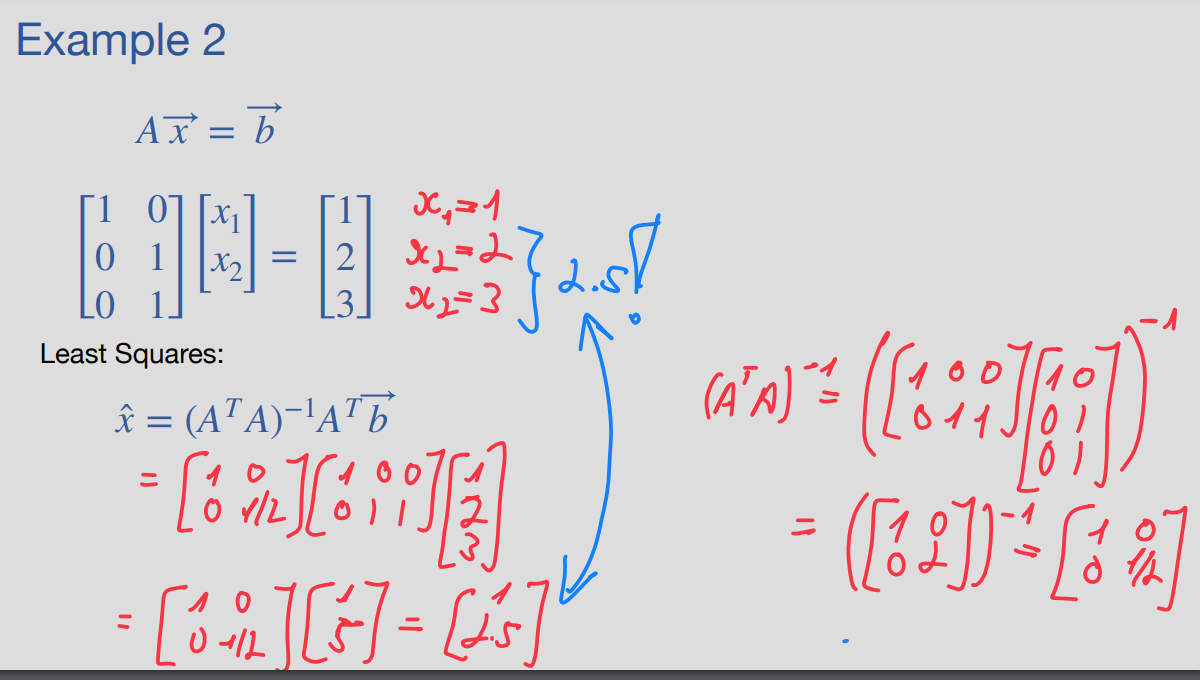 Example 2
A\vec{x} = \vec{b}
\begin{bmatrix} 1 & 0 \\ 0 & 1 \\ 0 & 1 \end{bmatrix} \begin{bmatrix} x_1 \\ x_2 \end{bmatrix} = \begin{bmatrix} 1 \\ 2 \\ 3 \end{bmatrix}
x_1 = 1
x_2 = 2
x_2 = 3
} 2.5!
Least Squares:
\hat{x} = (A^T A)^{-1} A^T \vec{b}
= \begin{bmatrix} 1 & 0 \\ 0 & 1/2 \end{bmatrix} \begin{bmatrix} 1 & 0 & 0 \\ 0 & 1 & 1 \end{bmatrix} \begin{bmatrix} 1 \\ 2 \\ 3 \end{bmatrix}
= \begin{bmatrix} 1 & 0 \\ 0 & 1/2 \end{bmatrix} \begin{bmatrix} 1 \\ 5 \end{bmatrix} = \begin{bmatrix} 1 \\ 2.5 \end{bmatrix}
(A^T A)^{-1} = \left( \begin{bmatrix} 1 & 0 & 0 \\ 0 & 1 & 1 \end{bmatrix} \begin{bmatrix} 1 & 0 \\ 0 & 1 \\ 0 & 1 \end{bmatrix} \right)^{-1}
= \left( \begin{bmatrix} 1 & 0 \\ 0 & 2 \end{bmatrix} \right)^{-1} = \begin{bmatrix} 1 & 0 \\ 0 & 1/2 \end{bmatrix}